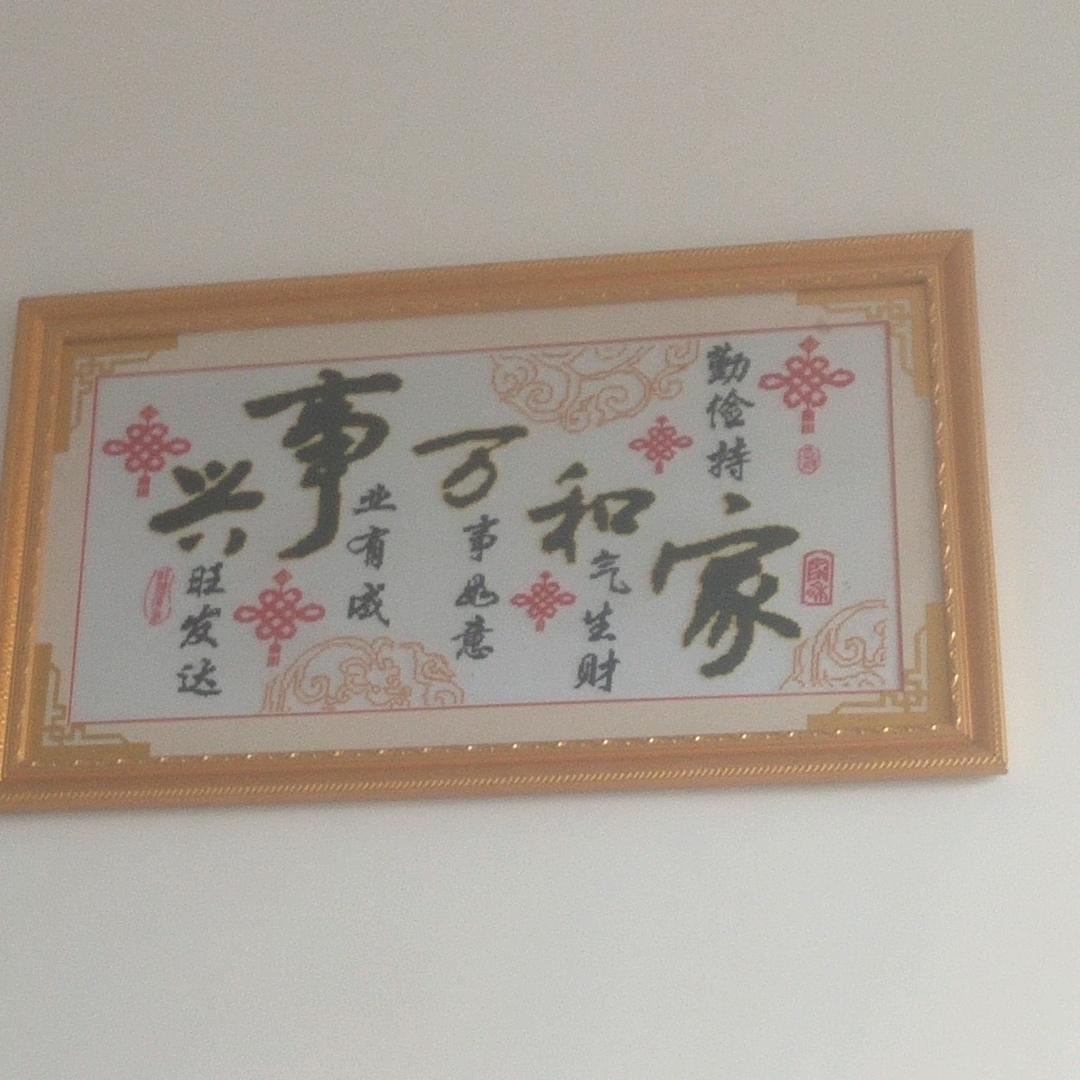 家和万事兴
勤俭持
气生财
事如意
业有成
旺发达